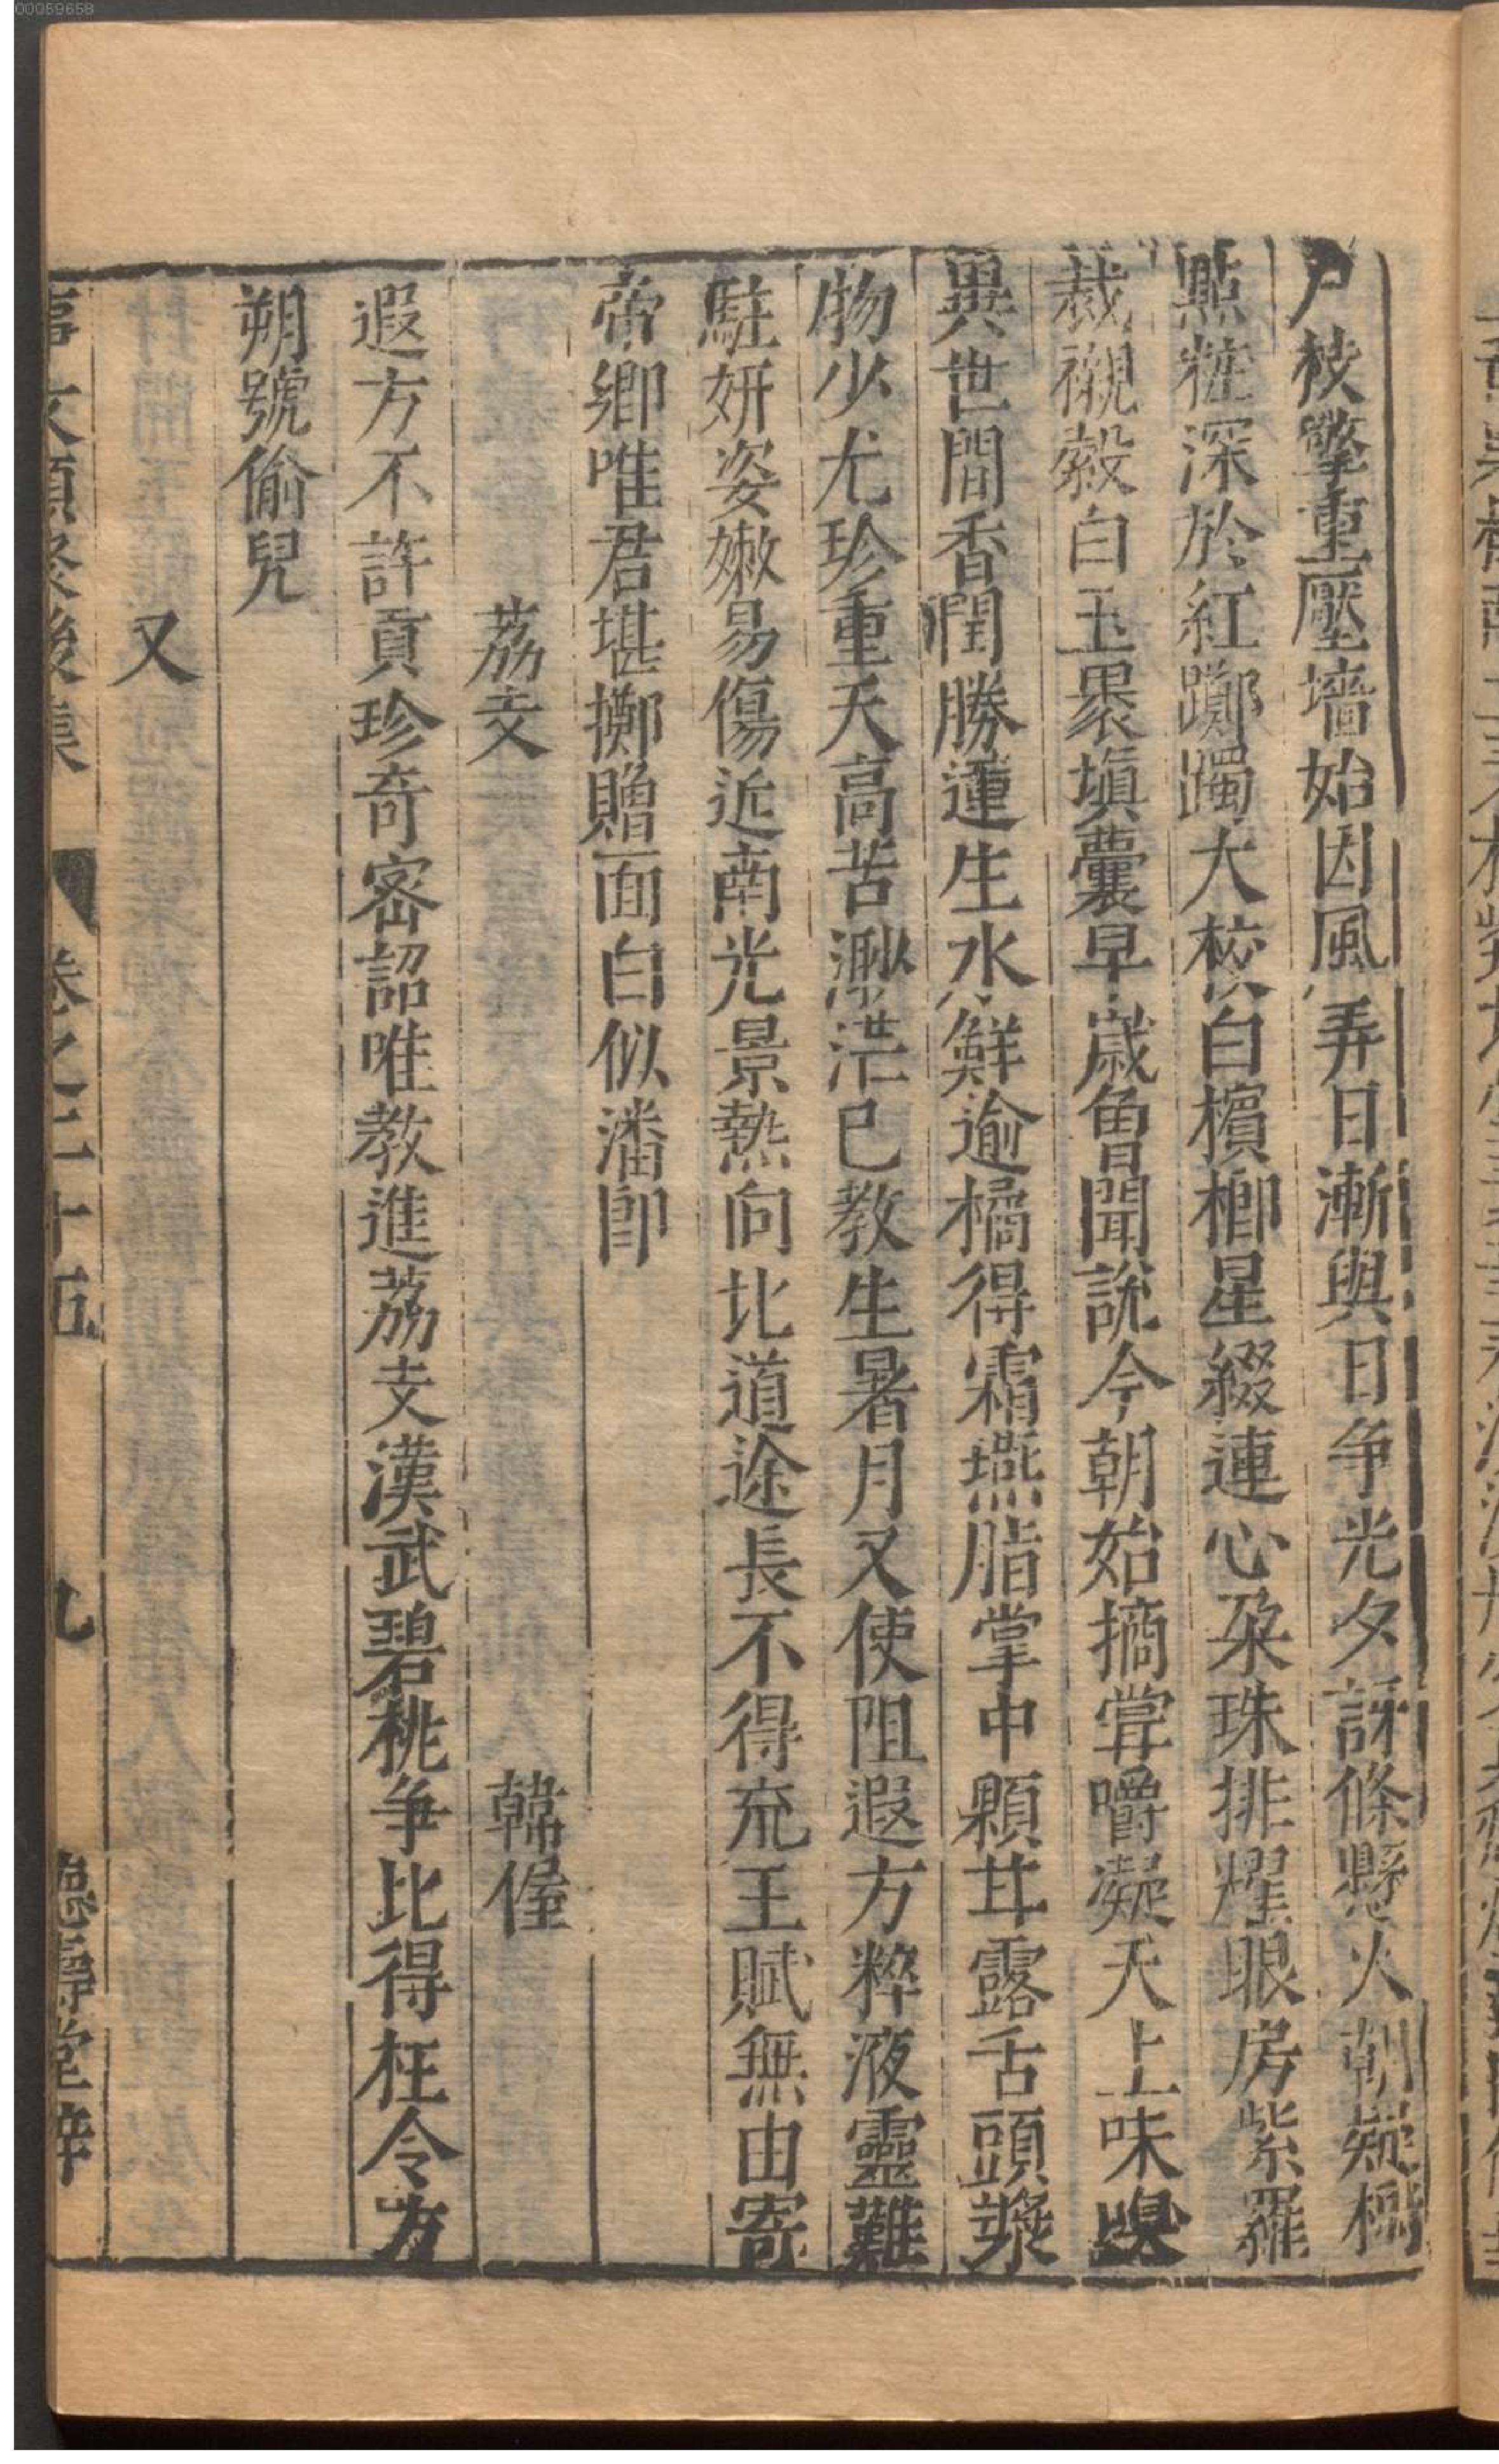 00059658
戶枝擎重壓墻始因風弄日漸與日争光夕訝條懸火朝疑樹
點粧深於紅躑躅大校白檳榔星綴連心朶珠排耀眼房紫羅
裁襯殻白玉褁塡囊早歲曾聞說今朝始摘嘗嚼凝天上味嗅
異世間香潤勝蓮生水鮮逾橘得霜燕脂掌中顆甘露舌頭漿
物少尤珍重天高苦渺茫已教生暑月又使阻遐方粹液靈難
駐妍姿嫩易傷近南光景熱向北道途長不得充王賦無由寄
帝鄉唯君堪擲贈面白似潘郎
荔支 韓偓
遐方不許貢珍奇密詔唯教進荔支漢武碧桃争比得枉令方
朔號偷兒
又
事文類聚後集 卷之二十五 九 德壽堂梓